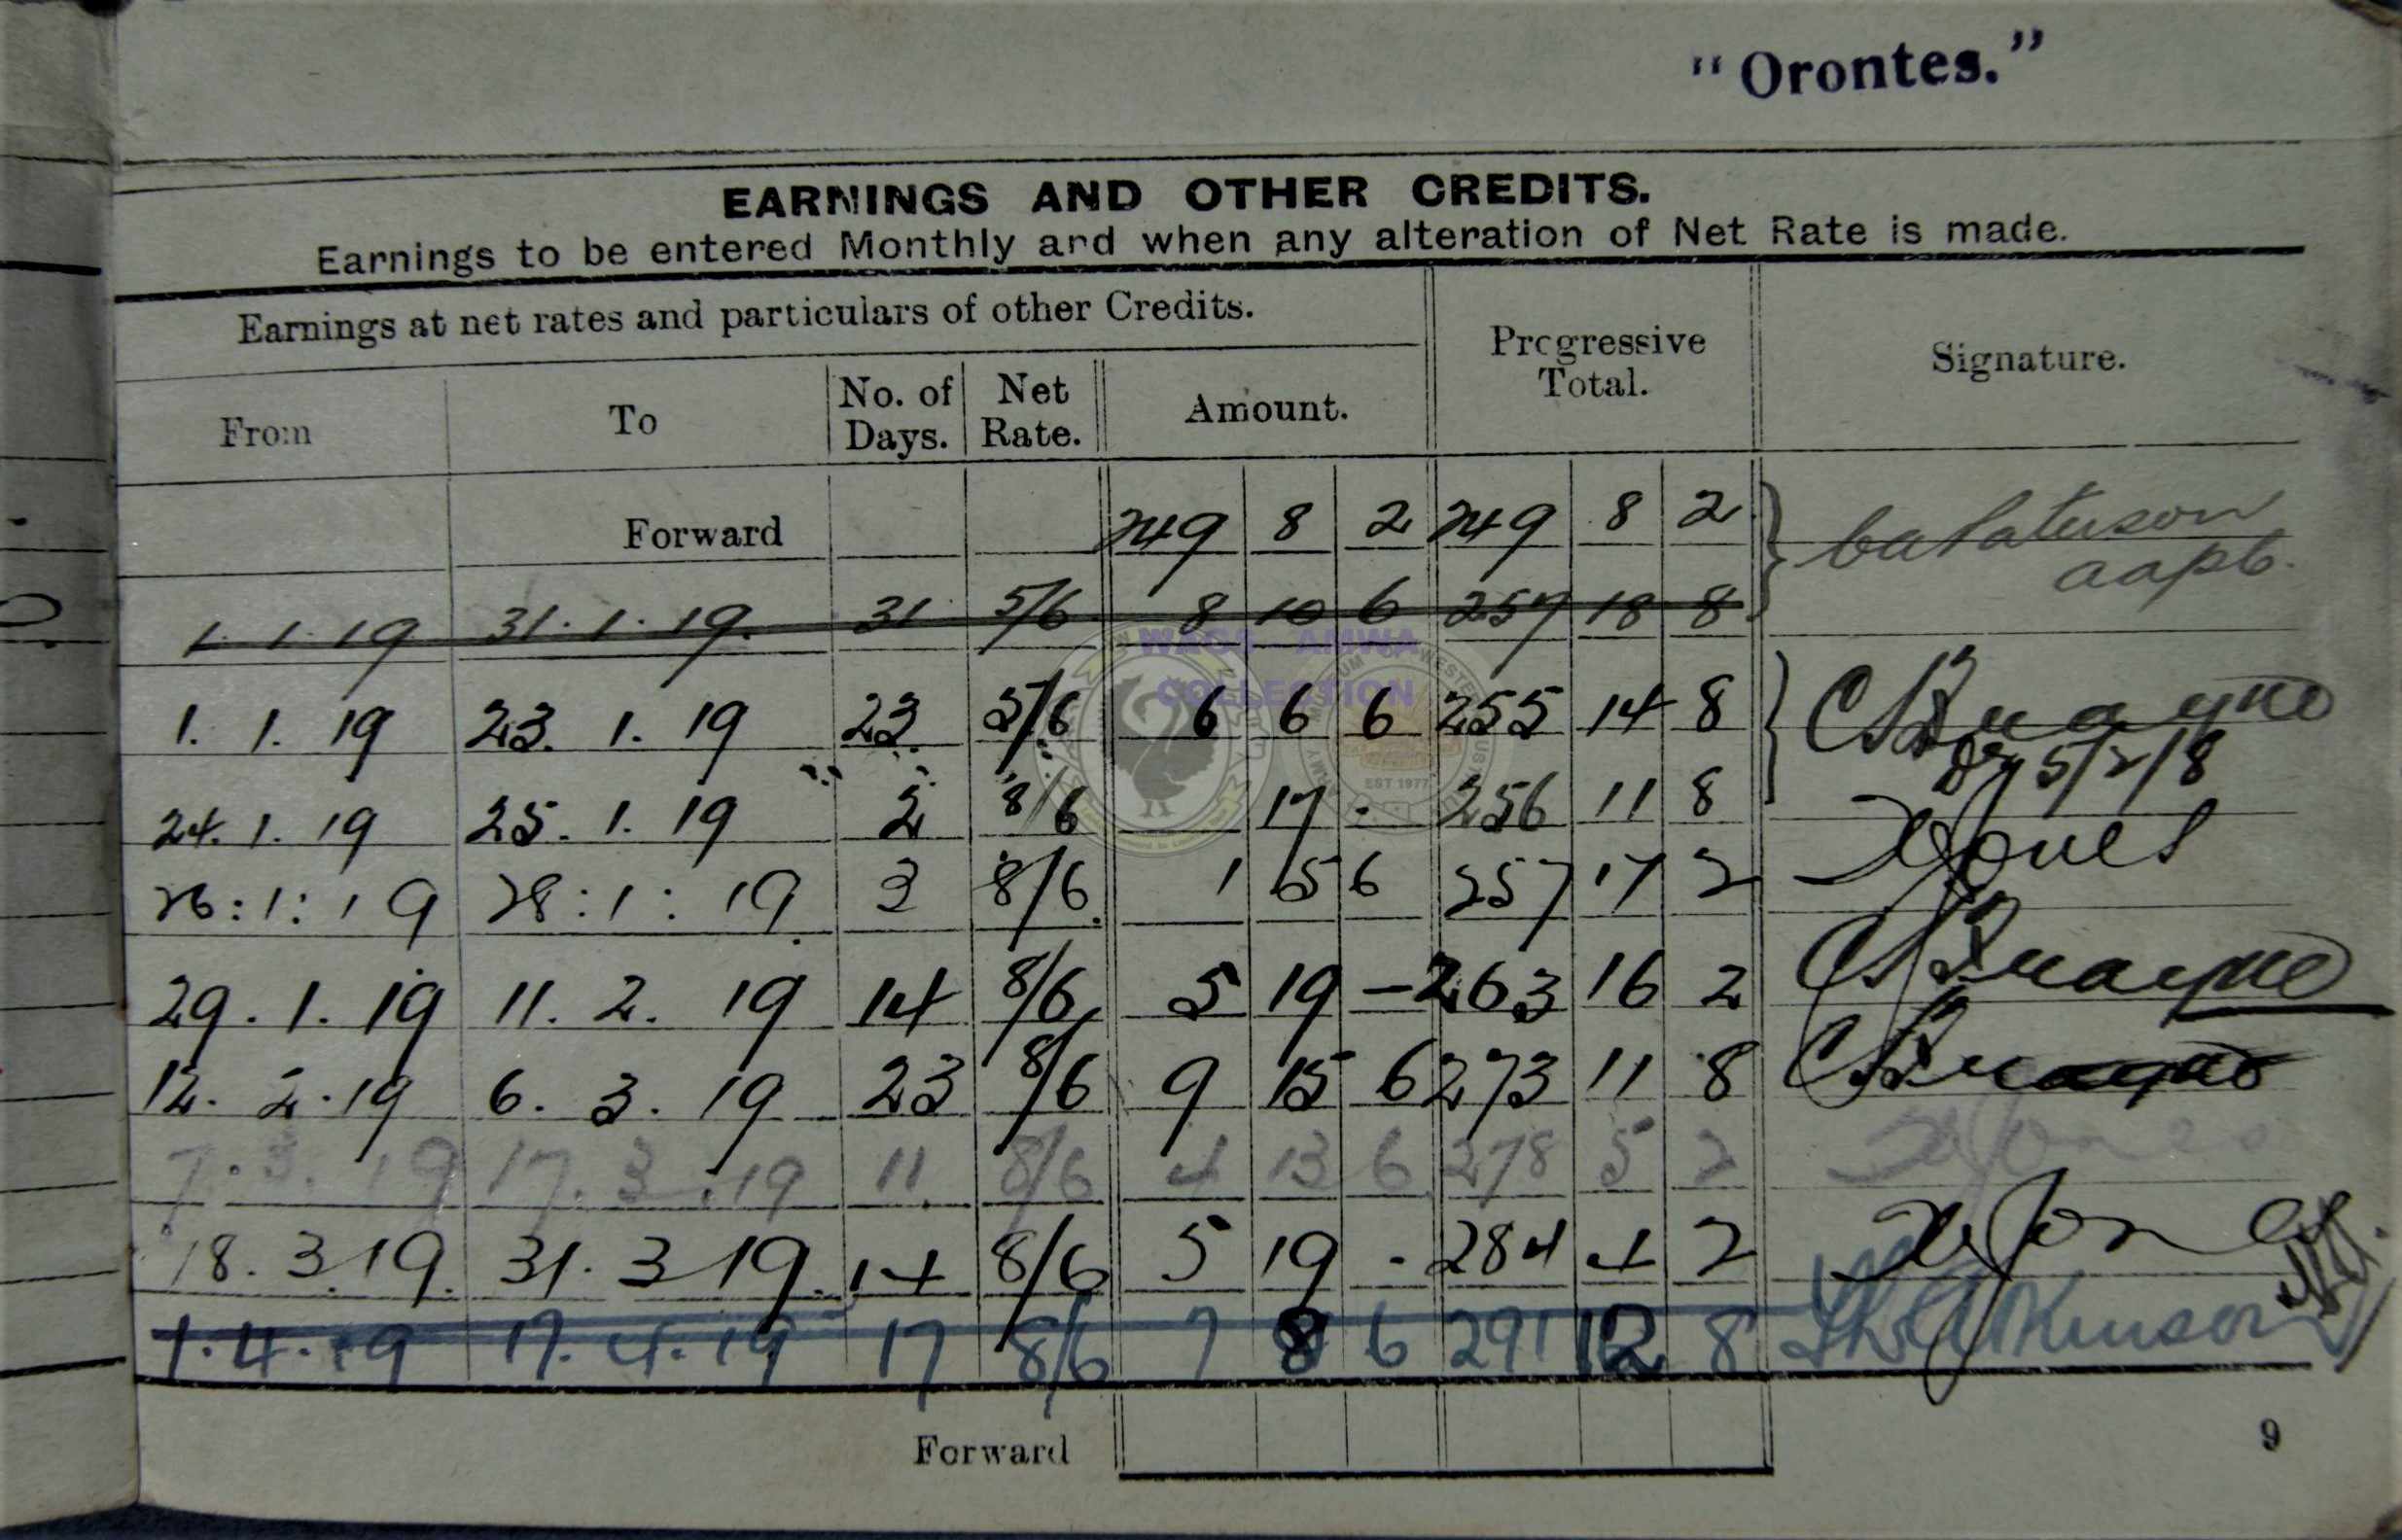 "Orontes."
EARNINGS AND OTHER CREDITS.
Earnings to be entered Monthly and when any alteration of Net Rate is made.
Earnings at net rates and particulars of other Credits.
Progressive Total.
Signature.
From To No. of Days. Net Rate. Amount.
Forward 249 8 2 249 8 2
1.1.19 31.1.19. 31 5/6 8 10 6 257 18 8
1.1.19 23.1.19 23 5/6 6 6 6 255 14 8
24.1.19 25.1.19 2 8/6 17 - 256 11 8
26:1:19 28:1:19 3 8/6 1 5 6 257 17 2 Jones
29.1.19 11.2.19 14 8/6 5 19 - 263 16 2
12.2.19 6.3.19 23 8/6 9 15 6 273 11 8
7.3.19 17.3.19 11 8/6 4 13 6 278 5 2 Jones
18.3.19. 31.3.19. 14 8/6 5 19 - 284 4 2 Jones
1.4.19 17.4.19 17 8/6 7 8 6 291 12 8
Forward
9
WAGS - AMWA
COLLECTION
EST 1977